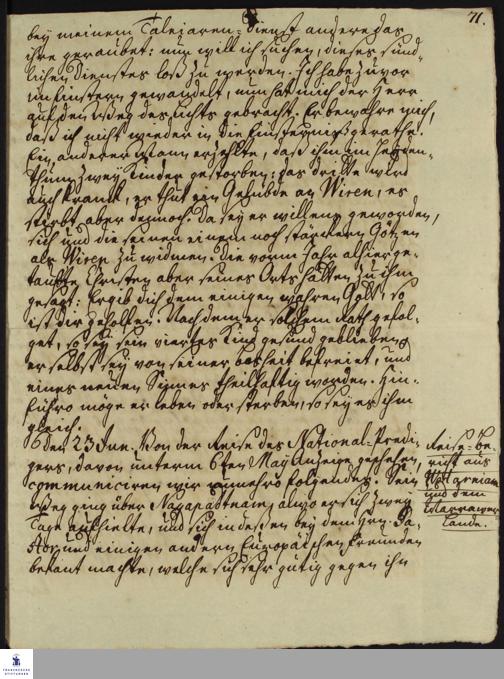 71.
bey meinem Taleiaren-Dienst andere das
ihre geraubet: nun will ich suchen, dieses sünd-
lichen Dienstes loß zu werden. Ich habe zuvor
im finstern gewandelt, nun hat mich der Herr
auf den Weg des Lichts gebracht. Er bewahre mich,
daß ich nicht wieder in die Finsterniß gerathe.
Ein anderer Mann erzehlte, daß ihm im Heyden-
thum zwey Kinder gestorben: das dritte wird
auch kranck, er thut ein Gelübde an Wiren, es
stirbt aber dennoch. Da sey er willens geworden,
sich und die seinen einem noch stärckern Götzen
als Wiren zu widmen. Die vorm Jahr alhier ge-
tauffte Christen aber seines Orts hätten zu ihm
gesagt: Ergib dich dem einigen wahren Gott, so
ist dir geholfen. Nachdem er solchem Rath gefol-
get, so sey sein viertes Kind gesund geblieben,
er selbst sey von seiner Bosheit befreiet, und
eines neuen Sinnes theilhaftig worden. Hin-
führo möge er leben oder sterben, so sey es ihm
gleich.
Den 23 Jun. Von der Reise des National-Predi-
gers, davon unterm 6ten May Anzeige geschehen,
communiciren wir nunmehro folgendes. Sein
Weg ging über Nagapatnam, alwo er sich zwey
Tage aufhielte, und sich indeßen bey dem Hrn. Pa-
stor und einigen andern Europäischen Freunden
bekant machte, welche sich sehr gütig gegen ihn
Reise-Be-
richt aus
und dem
Marrawer
Lande.
FRANCKESCHE
STIFTUNGEN